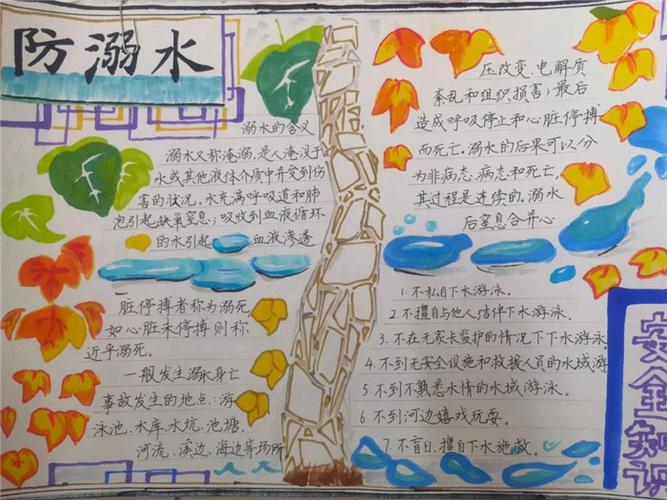 防溺水
溺水的含义
溺水又称淹溺，是人淹没于
水或其他液体介质中并受到伤
害的状况。水充满呼吸道和肺
泡引起缺氧窒息；吸收到血液循环
的水引起血液渗透
压改变、电解质
紊乱和组织损害；最后
造成呼吸停止和心脏停搏
而死亡。溺水的后果可以分
为非病态、病态和死亡，
其过程是连续的。溺水
后窒息合并心
脏停搏者称为溺死，
如心脏未停搏则称
近乎溺死。
一般发生溺水身亡
事故发生的地点：游
泳池、水库、水坑、池塘、
河流、溪边、海边等场所
1.不私自下水游泳。
2.不擅自与他人结伴下水游泳。
3.不在无家长监护的情况下下水游泳
4.不到无安全设施和救援人员的水域游
5.不到不熟悉水情的水域游泳。
6.不到河边嬉戏玩耍。
7.不盲目、擅自下水施救。
安全知识